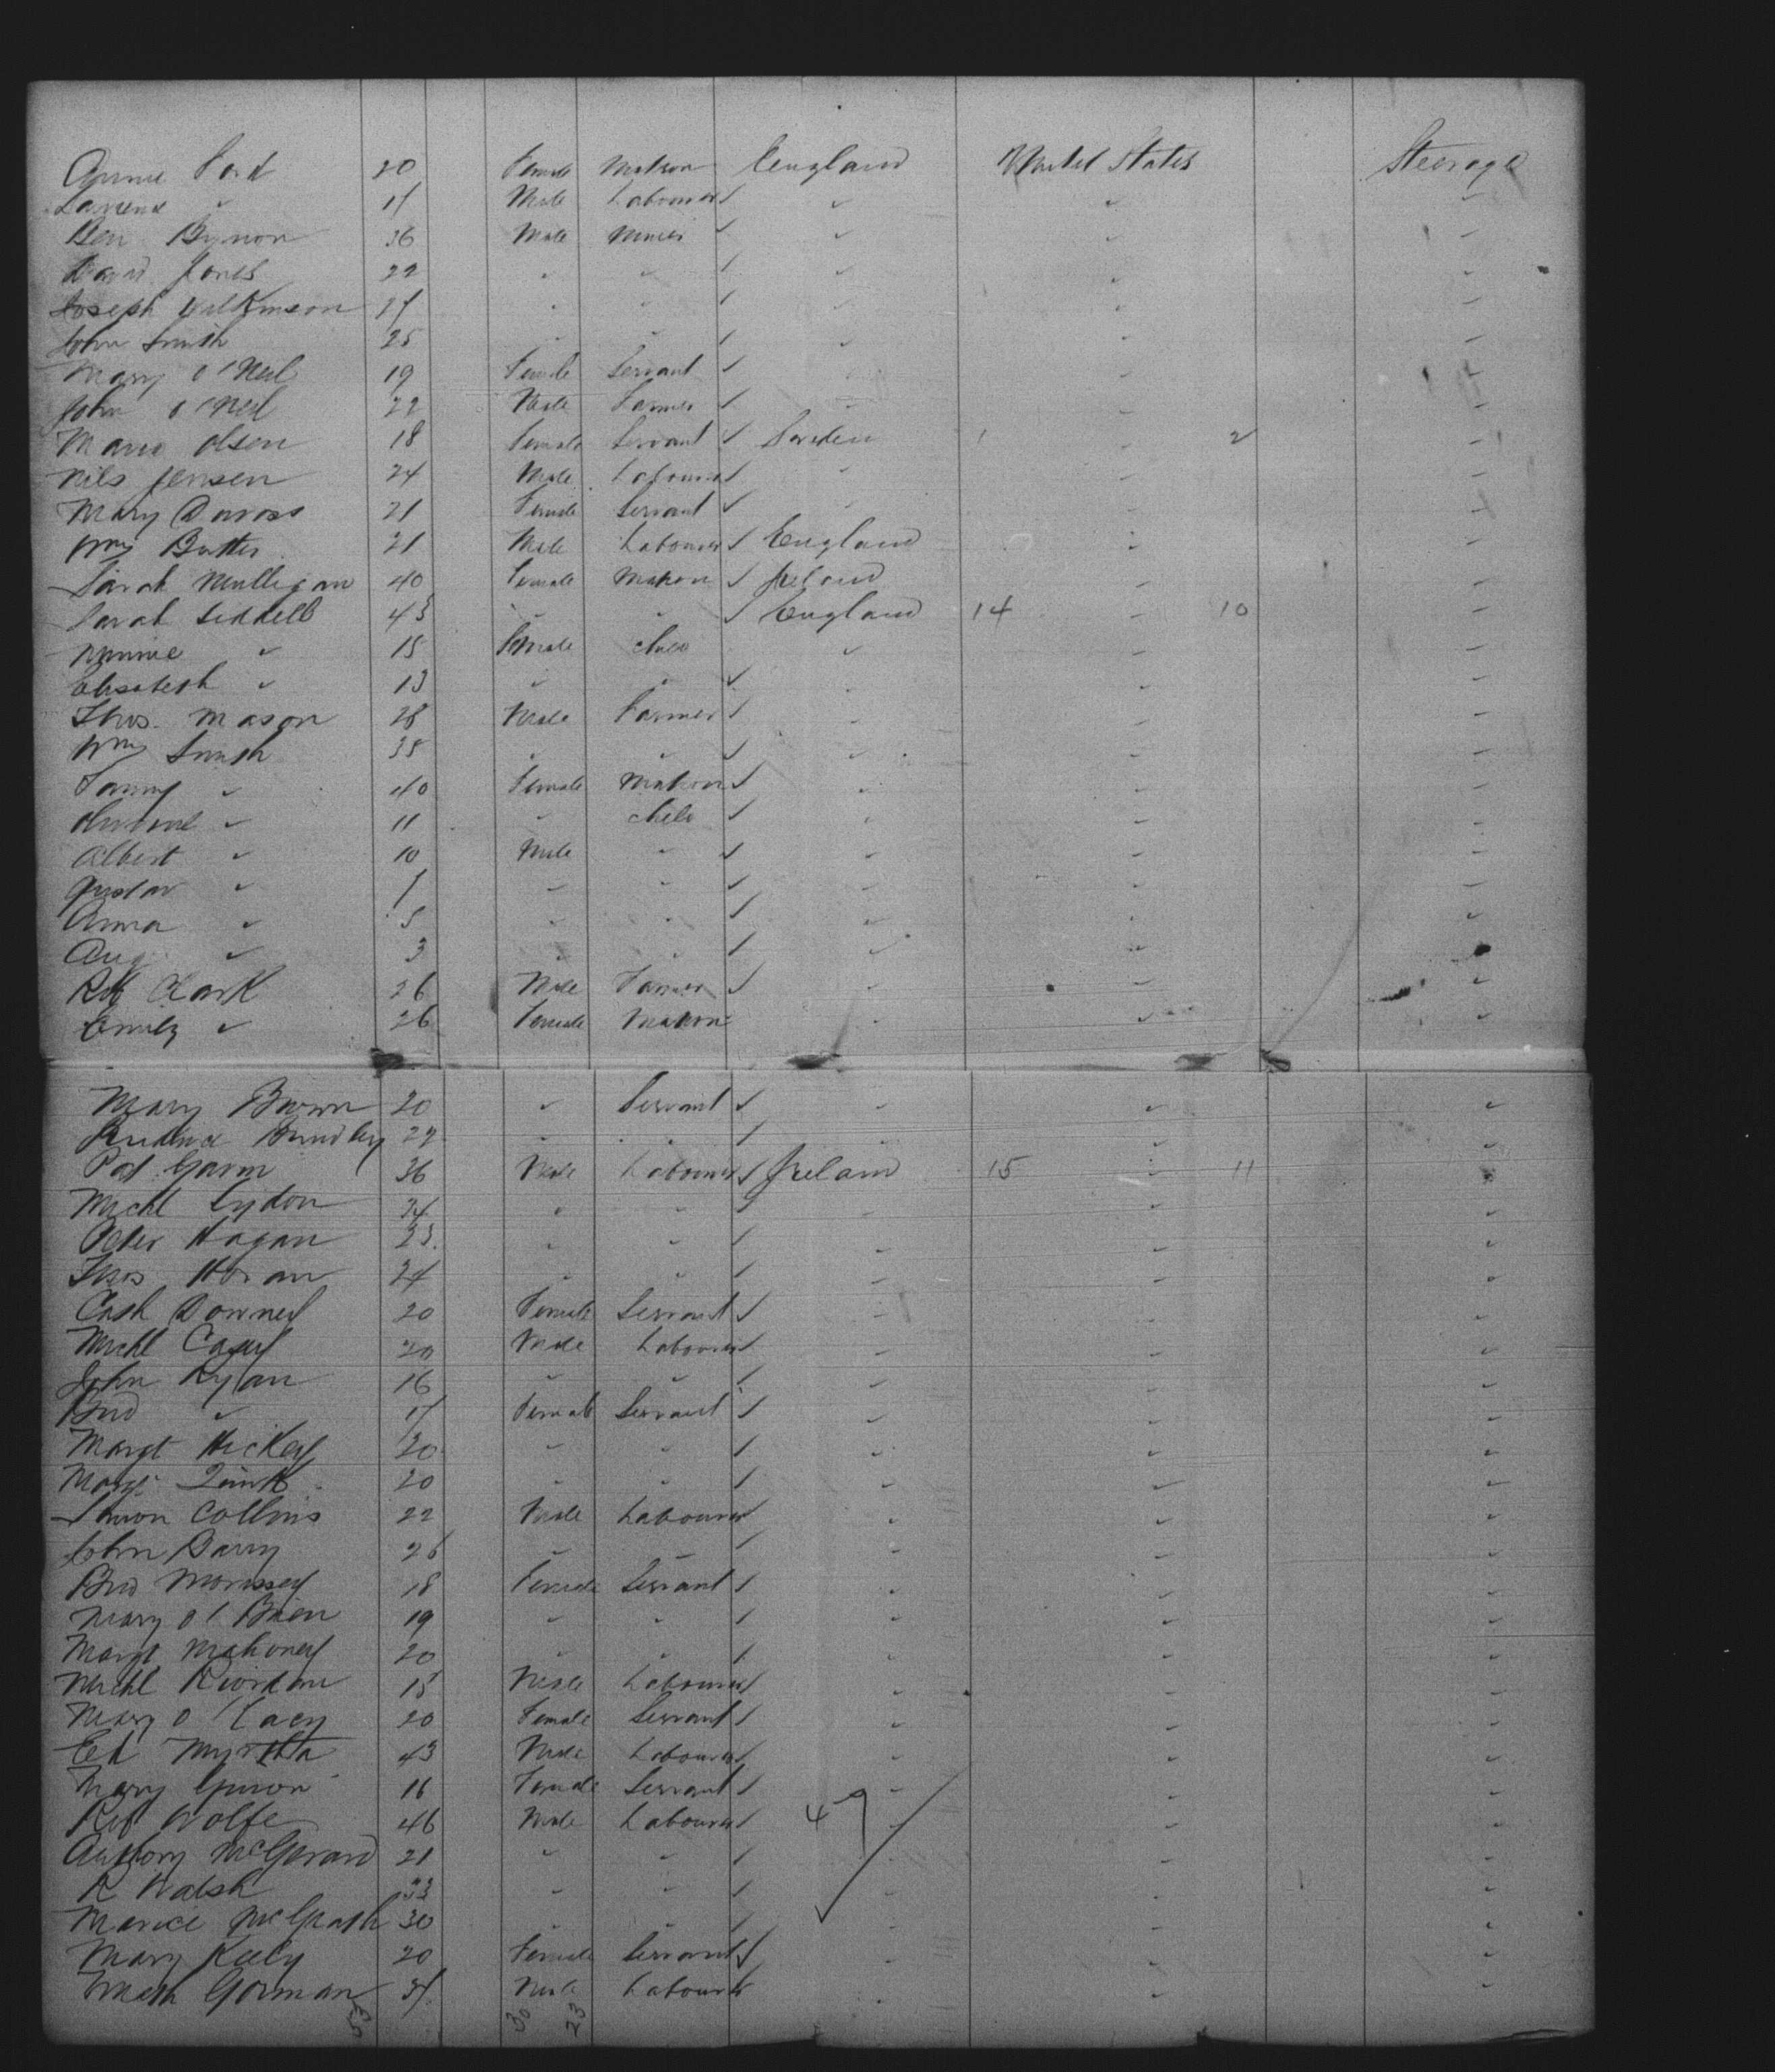 Annie 20 Female Matron England United States Steerage
17 Male Labourer
Ben Bynon 36 Male Miner
David Jones 22
Joseph Wilkinson 27
John Smith 25
Mary O'Neil 19 Female Servant
John O'Neil 22 Male Farmer
Maria Olsen 18 Female Servant Sweden 1 2
Nils Jensen 24 Male Labourer
Mary 21 Female Servant
Wm Butter 21 Male Labourer England
Sarah Mulligan 40 Female Matron Ireland
Sarah Siddell 43 England 14 10
Minnie 15 Female Child
Elisabeth 13
Thos. Mason 28 Male Farmer
Wm Smith 38
Fanny 40 Female Matron
11 Child
Albert 10 Male
Gustav 7
Anna 5
Aug 3
Rob Clark 26 Male Farmer
Emily 26 Female Matron
Mary Brown 20 Servant
22
Pat 36 Male Labourer Ireland 15 11
Michl Lydon 24
Peter Hagan 23
Thos Horan 24
Cath Downey 20 Female Servant
Michl Casey 20 Male Labourer
John Ryan 16
Brid 17 Female Servant
Margt Hickey 20
Margt 20
Simon Collins 22 Male Labourer
John Barry 26
Brid Morissey 18 Female Servant
Mary O'Brien 19
Margt Mahoney 20
Michl Riordan 18 Male Labourer
Mary O 20 Female Servant
Ed 43 Male Labourer
Mary 16 Female Servant
Wolfe 46 Male Labourer 47
Anthony 21
R Walsh 33
McGrath 30
Mary Kiely 20 Female Servant
Gorman 37 Male Labourer
53 30 23